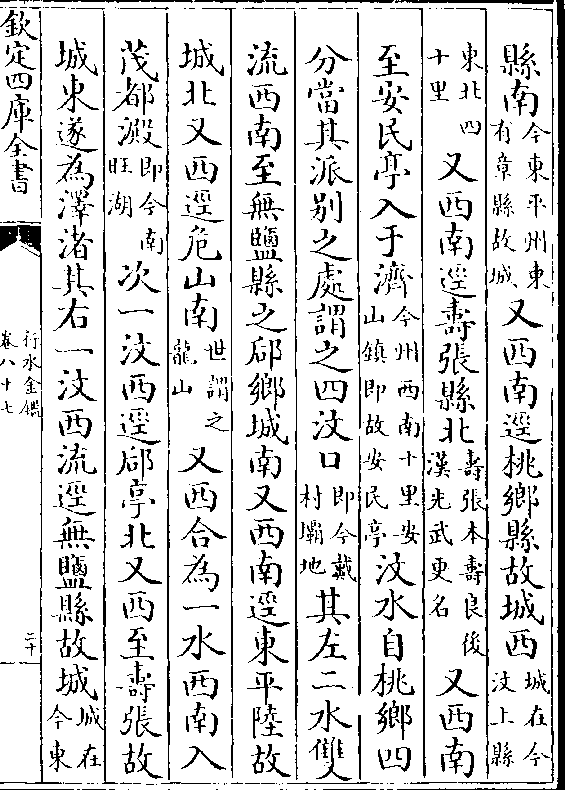 縣南今東平州東有章縣故城又西南逕桃鄉縣故城西城在今汶上縣
東北四十里又西南逕壽張縣北壽張本壽良後漢光武更名又西南
至安民亭入于濟今州西南十里安山鎮即故安民亭汶水自桃鄉四
分當其派別之處謂之四汶口即今戴村壩地其左二水雙
流西南至無鹽縣之郈鄉城南又西南逕東平陸故
城北又西逕危山南世謂之龍山又西合為一水西南入
茂都澱即今南旺湖次一汶西逕郈亭北又西至壽張故
城東遂為澤渚其右一汶西流逕無鹽縣故城城在今東
欽定四庫全書
行水金鑑
卷八十七
二十